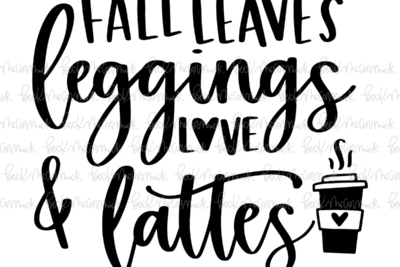 FALL LEAVES
leggings
LOVE
& lattes